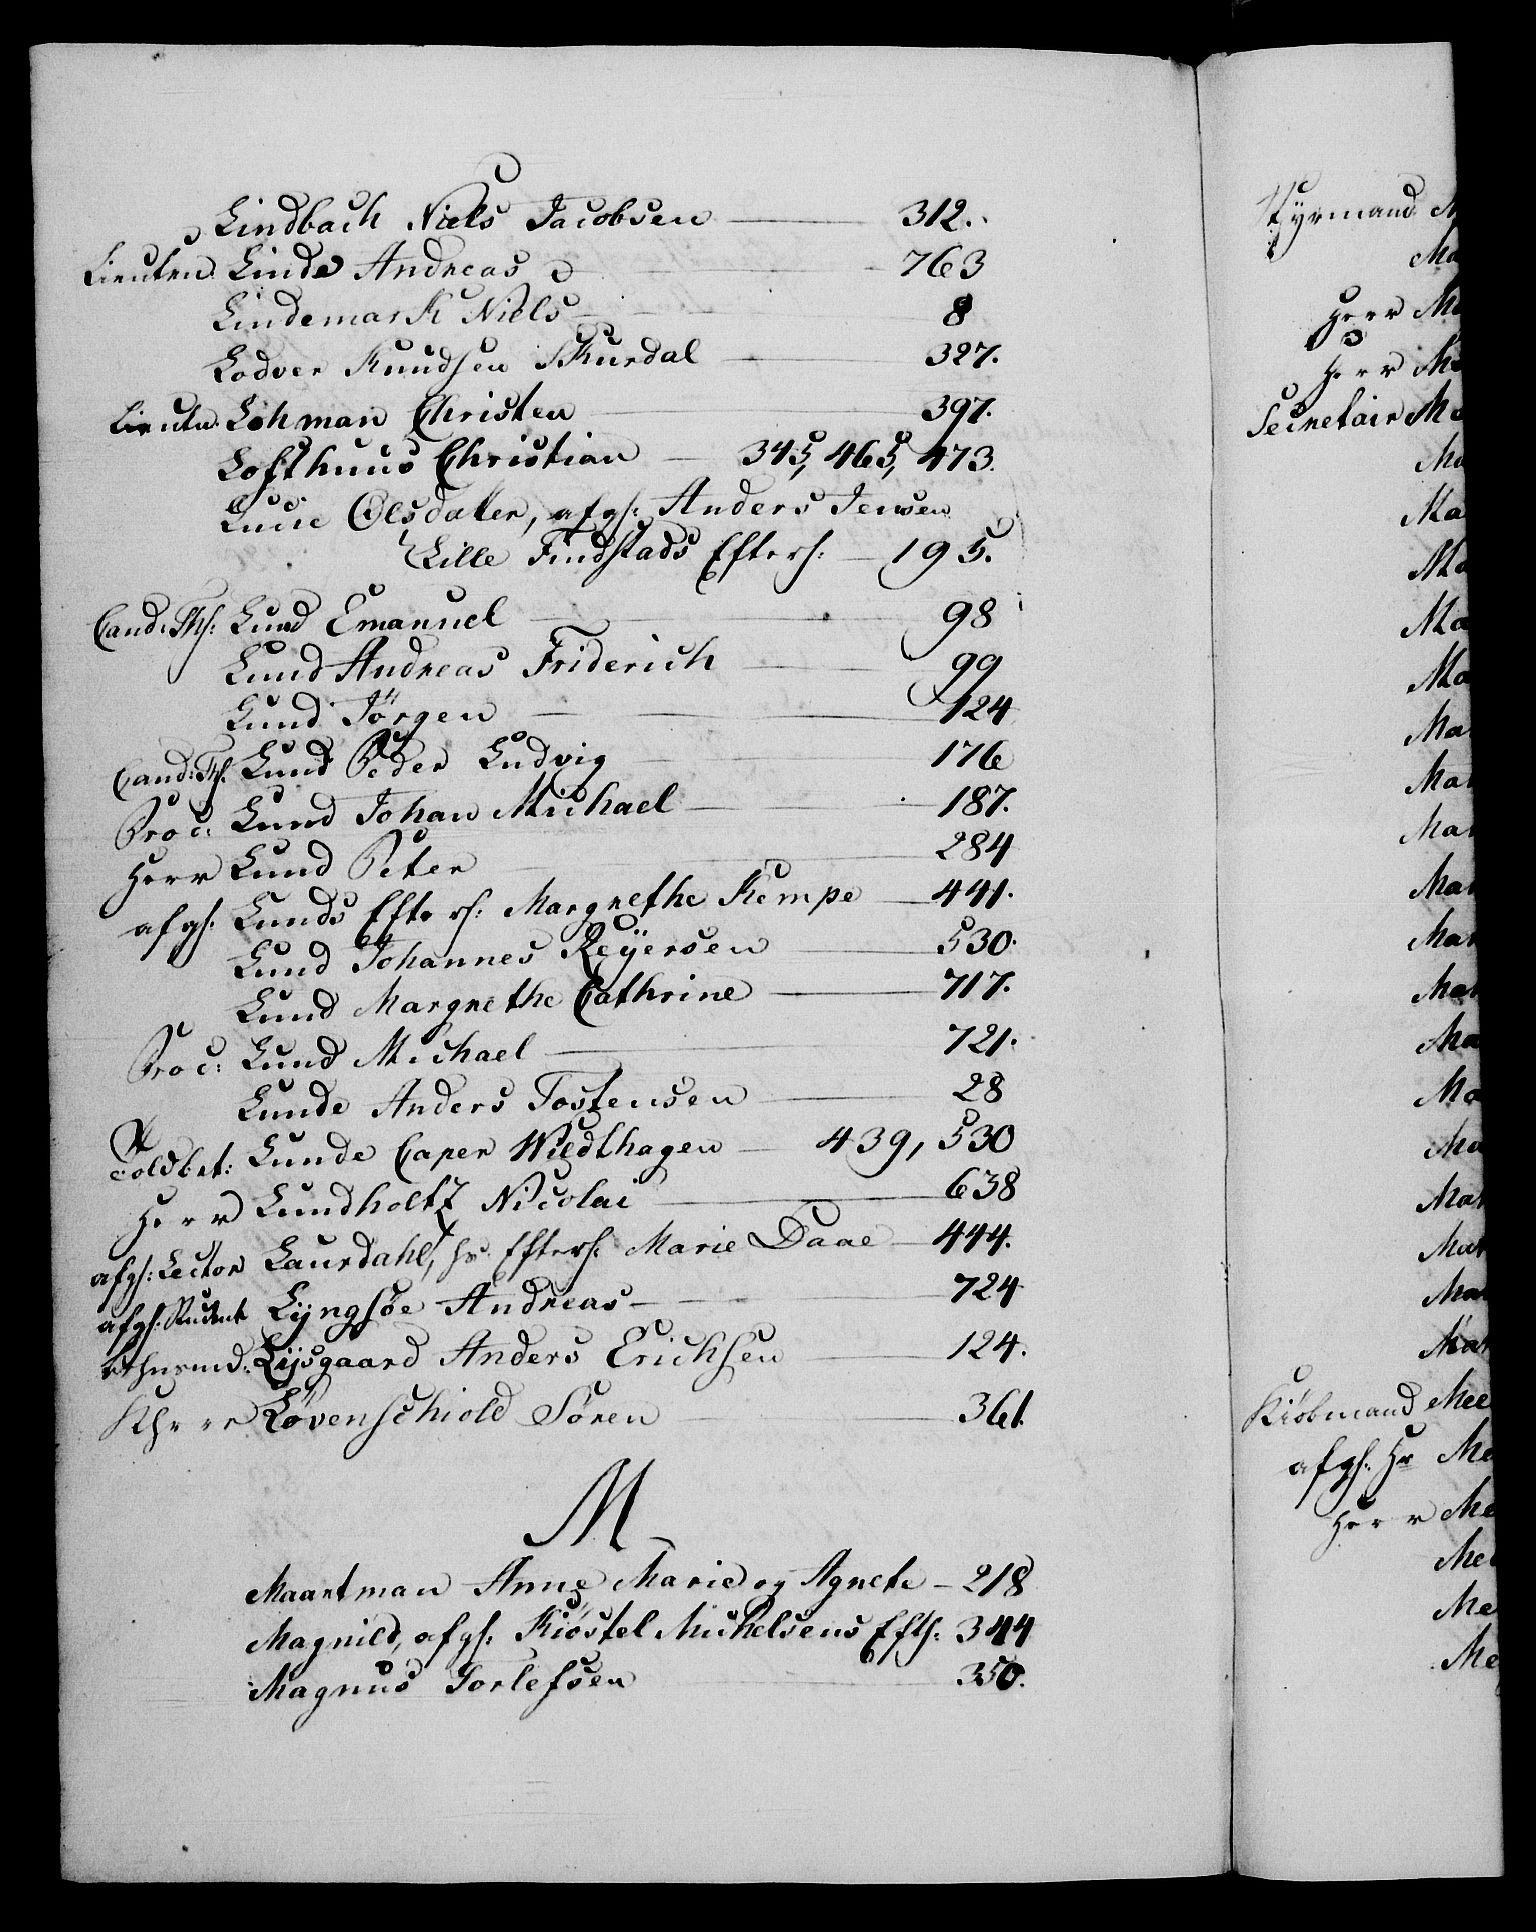 Lindbach Niels Jacobsen 312.
Lieuten: Linde Andreas 763
Lindemark Niels 8
Lodver Knudsen Skurdal 327.
Lieutn: Lohman Christen 397.
Lofthuus Christian 345, 465, 473.
Lucie Olsdatter, afgh: Anders Jensen
Lille Findstads Efterh: 195.
Cand: Th: Lund Emanuel 98
Lund Andreas Friderich 99
Lund Jörgen 124
Cand: Th: Lund Peder Ludvig 176
Proc: Lund Johan Michael 187.
Herr Lund Peter 284
afgh: Lunds Efterh: Margrethe Kempe 441.
Lund Johannes Reÿersen 530.
Lund Margrethe Cathrine 717.
Proc: Lund Michael 721.
Lunde Anders Tostensen 28
Toldbet: Lunde Caper Wildthagen 439, 530
Herr Lundholtz Nicolai 638
afgh: Lector Laurdahl, hs Efterh: Marie Daae 444.
afgh: Student Lÿngsöe Andreas 724
Lÿsgaard Anders Erichsen 124.
Khrr Lövenschiold Sören 361.
M
Maartman Anne Marie og Agnete 218
Magnild, afgh: Kiöstel Mickelsens Efth: 344
Magnus Torlefsen 350.
Styrmand M
Ma
Herr Ma
Herr Ma
Secretair Ma
Ma
Ma
Ma
Ma
Ma
Mar
Mar
Mar
Mar
Mar
Mar
Ma
Ma
Ma
Mar
Mar
Mar
Mar
Kiöbmand Mee
afgh: Hr Me
Herr Me
Me
Me
Me